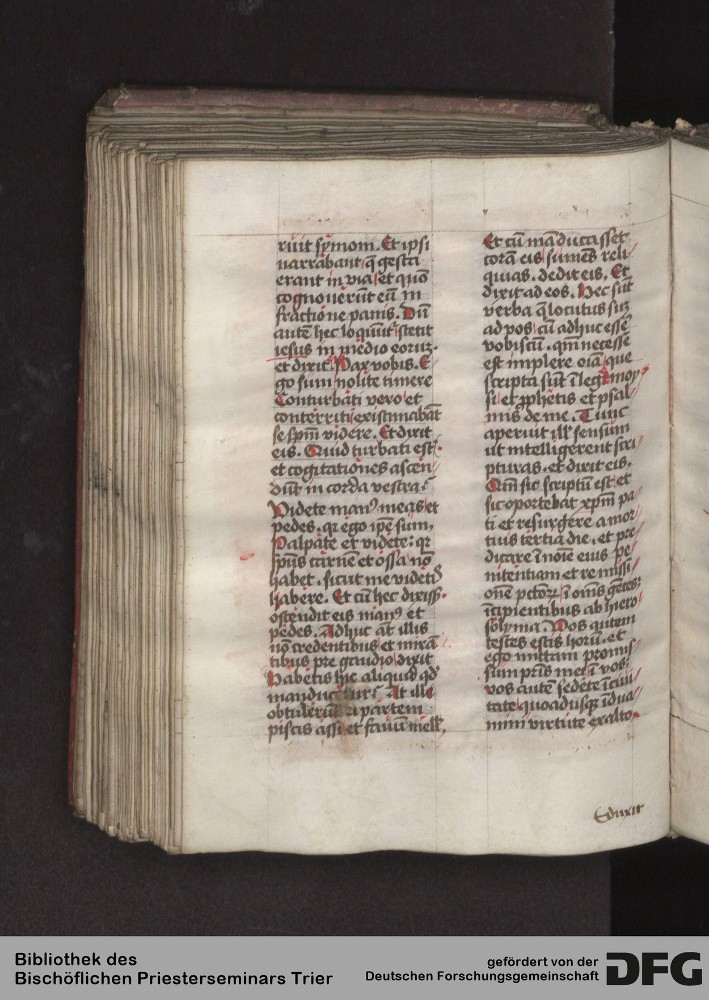 ruit symoni. Et ipsi
narrabant q̄ gesta
erant in via et quō
cognoverūt eū in
fractione panis. Dū
autē hec loquūt̄ stetit
iesus in medio eorum.
et dixit. Pax vobis. E
go sum nolite timere
Conturbati vero et
conterriti existimabāt
se spm̄ videre. Et dixit
eis. Quid turbati estis
et cogitationes ascen
dūt in corda vestra.
Videte manꝰ meas et
pedes. qr ego ipē sum.
Palpate et videte: qr
spūs carnē et ossa nō
habet. sicut me videtis
habere. Et cū hec dixiss.
ostendit eis manꝰ et
pedes. Adhuc āt illis
nō credentibus et mirā
tibus pre gaudio dixit
Habetis hic aliquid qđ
manducetur. At illi
obtulerūt ei partem
piscis assi et favū mell.
Et cū māducasset
corā eis sumēs reli
quias. dedit eis. Et
dixit ad eos. Hec sūt
verba q̄ locutus sū
ad vos cū adhuc essē
vobiscū. qm̄ necesse
est implere oīa que
scripta sūt ī lege moy
si et ꝓphetis et psal
mis de me. Tunc
aperuit ill' sensum
ut intelligerent scri
pturas. et dixit eis.
Qm̄ sic scriptū est et
sic oportebat xpm̄ pa
ti et resurgere a mor
tuis tertia die. et pre
dicare ī noīe eius pe
nitentiam et remissi
onē pctoꝝ ī omīs gētes
īcipientibus ab hiero
solyma. Vos autem
testes estis horū. et
ego mittam promis
sum pr̄is mei ī vos:
vos autē sedete ī civi
tate quoadusqꝫ īdua
mini virtute ex alto.
Eduxit
Bibliothek des
Bischöflichen Priesterseminars Trier
gefördert von der
Deutschen Forschungsgemeinschaft
DFG